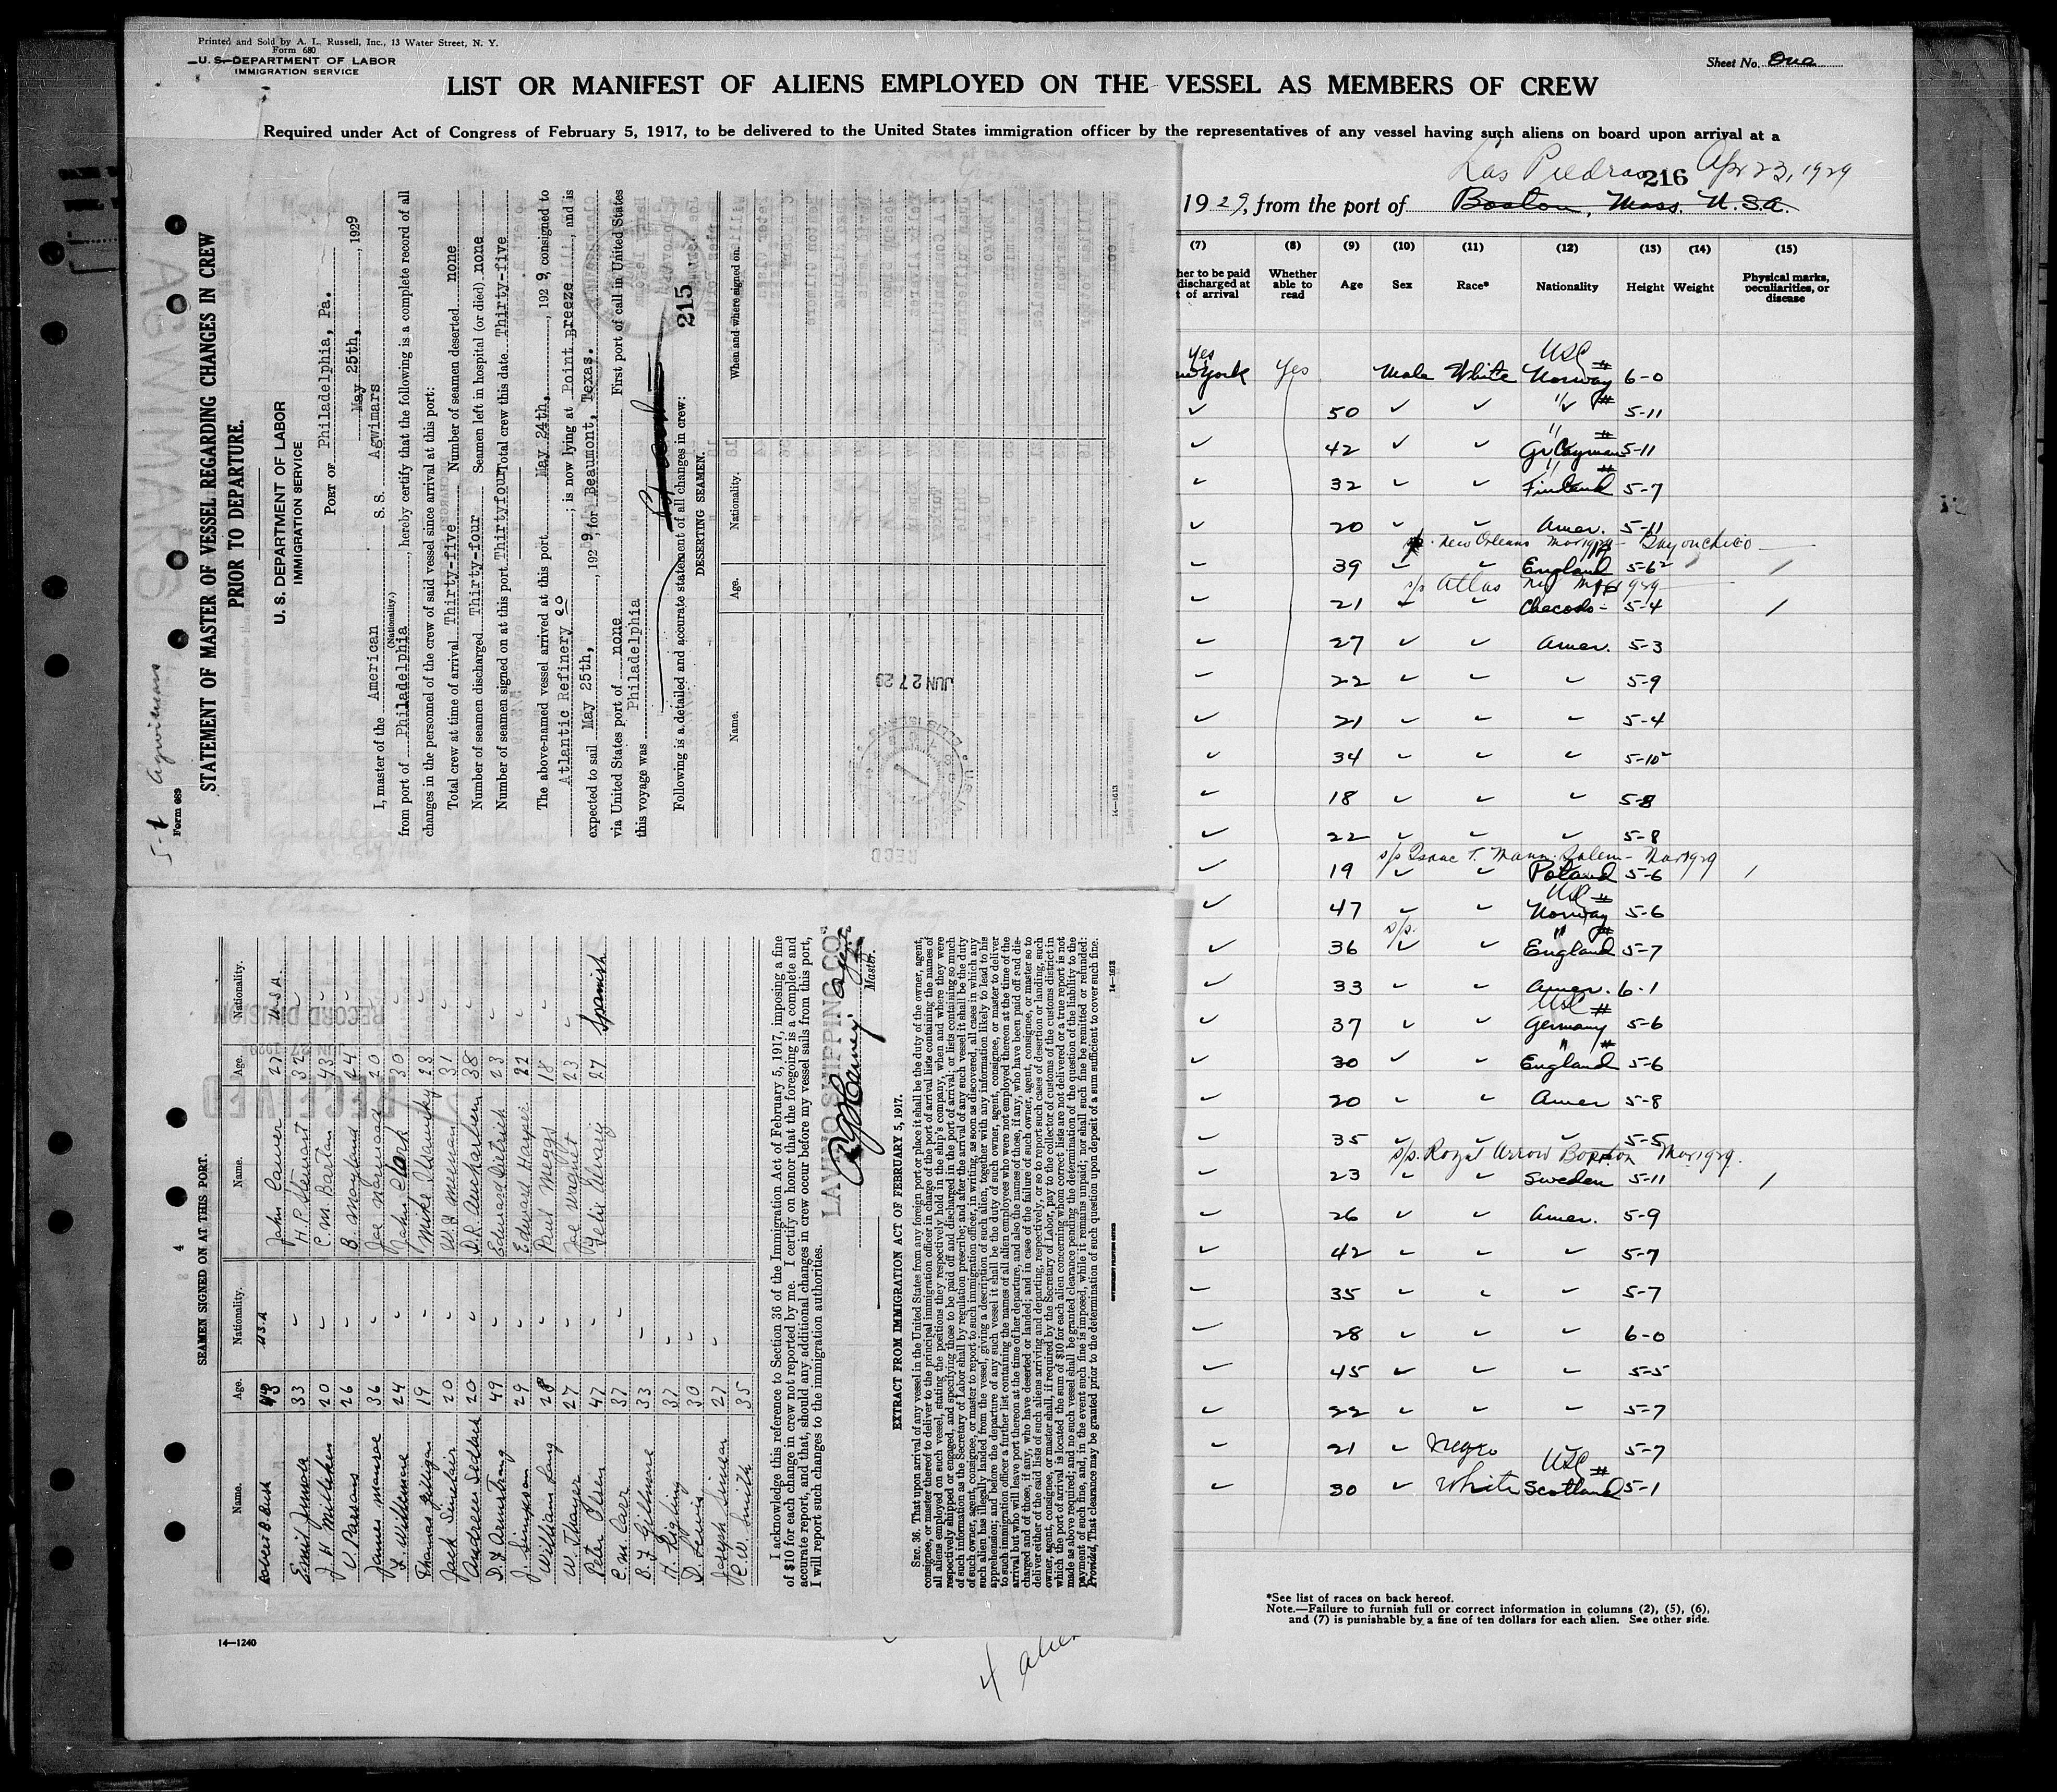 Printed and Sold by A. L. Russell, Inc., 13 Water Street, N. Y.
Form 680
U. S. DEPARTMENT OF LABOR
IMMIGRATION SERVICE
Sheet No. One
LIST OR MANIFEST OF ALIENS EMPLOYED ON THE VESSEL AS MEMBERS OF CREW
Required under Act of Congress of February 5, 1917, to be delivered to the United States immigration officer by the representatives of any vessel having such aliens on board upon arrival at a
Las Piedras 216 Apr 23, 1929
1929, from the port of Boston, Mass. U.S.A.
(7) (8) (9) (10) (11) (12) (13) (14) (15)
her to be paid discharged at t of arrival
Whether able to read
Age
Sex
Race*
Nationality
Height
Weight
Physical marks, peculiarities, or disease
Yes USC #
York Yes Male White Norway 6-0
✓ 50 ✓ ✓ " ✓ # 5-11
✓ 42 ✓ ✓ " Gr. Cayman # 5-11
✓ 32 ✓ ✓ " Finland # 5-7
✓ 20 ✓ ✓ Amer. 5-11
New Orleans Mar 1929 Bayou Chico
✓ 39 ✓ ✓ England 5-6½
s/s Atlas N.Y. 1929
✓ 21 ✓ ✓ Checoslo- 5-4
✓ 27 ✓ ✓ Amer. 5-3
✓ 22 ✓ ✓ ✓ 5-9
✓ 21 ✓ ✓ ✓ 5-4
✓ 34 ✓ ✓ ✓ 5-10½
✓ 18 ✓ ✓ ✓ 5-8
✓ 22 ✓ ✓ ✓ 5-8
s/s Isaac T. Mann Salem - Mar 1929
✓ 19 ✓ ✓ Poland 5-6
USC #
✓ 47 ✓ ✓ Norway 5-6
s/s. " #
✓ 36 ✓ ✓ England 5-7
✓ 33 ✓ ✓ Amer. 6-1
USC #
✓ 37 ✓ ✓ Germany 5-6
" #
✓ 30 ✓ ✓ England 5-6
✓ 20 ✓ ✓ Amer 5-8
✓ 35 ✓ ✓ ✓ 5-5
s/s. Royal Arrow Boston Mar 1929.
✓ 23 ✓ ✓ Sweden 5-11
✓ 26 ✓ ✓ Amer. 5-9
✓ 42 ✓ ✓ ✓ 5-7
✓ 35 ✓ ✓ ✓ 5-7
✓ 28 ✓ ✓ ✓ 6-0
✓ 45 ✓ ✓ ✓ 5-5
✓ 22 ✓ ✓ ✓ 5-7
✓ 21 ✓ Negro ✓ 5-7
USC #
✓ 30 ✓ White Scotland 5-1
*See list of races on back hereof.
Note.—Failure to furnish full or correct information in columns (2), (5), (6),
and (7) is punishable by a fine of ten dollars for each alien. See other side.
14—1240
4 alien
5-t Agwimars
Form 689
STATEMENT OF MASTER OF VESSEL REGARDING CHANGES IN CREW
PRIOR TO DEPARTURE.
U. S. DEPARTMENT OF LABOR
IMMIGRATION SERVICE
PORT OF Philadelphia, Pa.
May 25th, , 1929
I, master of the American S. S. Agwimars
(Nationality.)
from port of Philadelphia, hereby certify that the following is a complete record of all
changes in the personnel of the crew of said vessel since arrival at this port:
Total crew at time of arrival Thirty-five Number of seamen deserted none
Number of seamen discharged Thirty-four Seamen left in hospital (or died) none
Number of seamen signed on at this port Thirtyfour Total crew this date Thirty-five
The above-named vessel arrived at this port May 24th, , 1929, consigned to
Atlantic Refinery Co ; is now lying at Point Breeze, and is
expected to sail May 25th, , 1929, for Beaumont, Texas.
via United States port of none First port of call in United States
this voyage was Philadelphia
215
Following is a detailed and accurate statement of all changes in crew:
DESERTING SEAMEN.
Name. Age. Nationality. When and where signed on.
JUN 27 29
RECD
14—1613
SEAMEN SIGNED ON AT THIS PORT.
Name. Age. Nationality. Name. Age. Nationality.
Robert B. Bush 43 USA John Conner 27 U.S.A.
Emil Jansora 33 " H. P. Stewart 32 "
J H Milliken 20 " C. M. Barton 43 "
V Parsons 26 " B. Moyland 24 "
James Monroe 36 " Joe 20 "
F. Wittemore 24 " John Clark 30 "
Thomas Gilligan 19 " Mike 23 "
Jack Sinclair 20 " W. J Meenan 31 "
Andreen Sedlack 20 " D. R. Auchterlein 38 "
D. J Armstrong 49 " Edward Dietrich 23 "
J. Simpson 29 " Edward Harper 22 "
William Lang 28 " Paul Meggs 18 "
W. Thayer 27 " Joe 23 "
Peter Olsen 47 " Felix Alvarez 27 Spanish
C. M. Carr 37 "
B. F Gillmore 33 "
H. Rigling 37 "
D. Lewis 30 "
Joseph Simon 27 "
R. W. Smith 35
I acknowledge this reference to Section 36 of the Immigration Act of February 5, 1917, imposing a fine
of $10 for each change in crew not reported by me. I certify on honor that the foregoing is a complete and
accurate report, and that, should any additional changes in crew occur before my vessel sails from this port,
I will report such changes to the immigration authorities.
LAVINO SHIPPING CO.
Agent
Master.
EXTRACT FROM IMMIGRATION ACT OF FEBRUARY 5, 1917.
SEC. 36. That upon arrival of any vessel in the United States from any foreign port or place it shall be the duty of the owner, agent,
consignee, or master thereof to deliver to the principal immigration officer in charge of the port of arrival lists containing the names of
all aliens employed on such vessel, stating the positions they respectively hold in the ship's company, when and where they were
respectively shipped or engaged, and specifying those to be paid off and discharged in the port of arrival; or lists containing so much
of such information as the Secretary of Labor shall by regulation prescribe; and after the arrival of any such vessel it shall be the duty
of such owner, agent, consignee, or master to report to such immigration officer, in writing, as soon as discovered, all cases in which any
such alien has illegally landed from the vessel, giving a description of such alien, together with any information likely to lead to his
apprehension; and before the departure of any such vessel it shall be the duty of such owner, agent, consignee, or master to deliver
to such immigration officer a further list containing the names of all alien employees who were not employed thereon at the time of the
arrival but who will leave port thereon at the time of her departure, and also the names of those, if any, who have been paid off and dis-
charged and of those, if any, who have deserted or landed; and in case of the failure of such owner, agent, consignee, or master so to
deliver either of the said lists of such aliens arriving and departing, respectively, or so to report such cases of desertion or landing, such
owner, agent, consignee, or master shall, if required by the Secretary of Labor, pay to the collector of customs of the customs district in
which the port of arrival is located the sum of $10 for each alien concerning whom correct lists are not delivered or a true report is not
made as above required; and no such vessel shall be granted clearance pending the determination of the question of the liability to the
payment of such fine, and, in the event such fine is imposed, while it remains unpaid; nor shall such fine be remitted or refunded:
Provided, That clearance may be granted prior to the determination of such question upon deposit of a sum sufficient to cover such fine.
14—1613